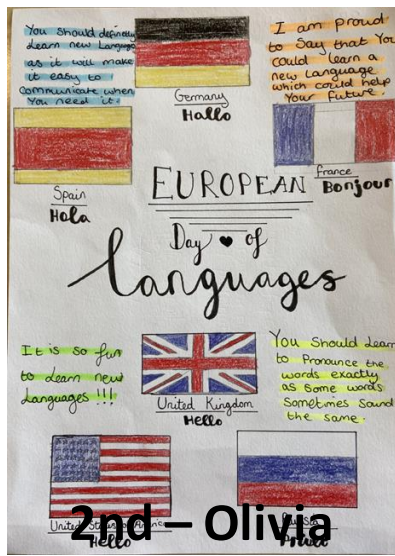 You should definitely
Learn new Language
as it will make
it easy to
communicate when
You need it.
Germany
Hallo
I am proud
to Say that You
could learn a
new Language
which could help
Your future.
Spain
Hola
France
Bonjour
EUROPEAN
Day of
Languages
It is so fun
to Learn new
Languages !!!
United Kingdom
Hello
You Should Learn
to Pronounce the
words exactly
as Some words
Sometimes Sound
the same.
United States of America
Hello
Russia
2nd – Olivia